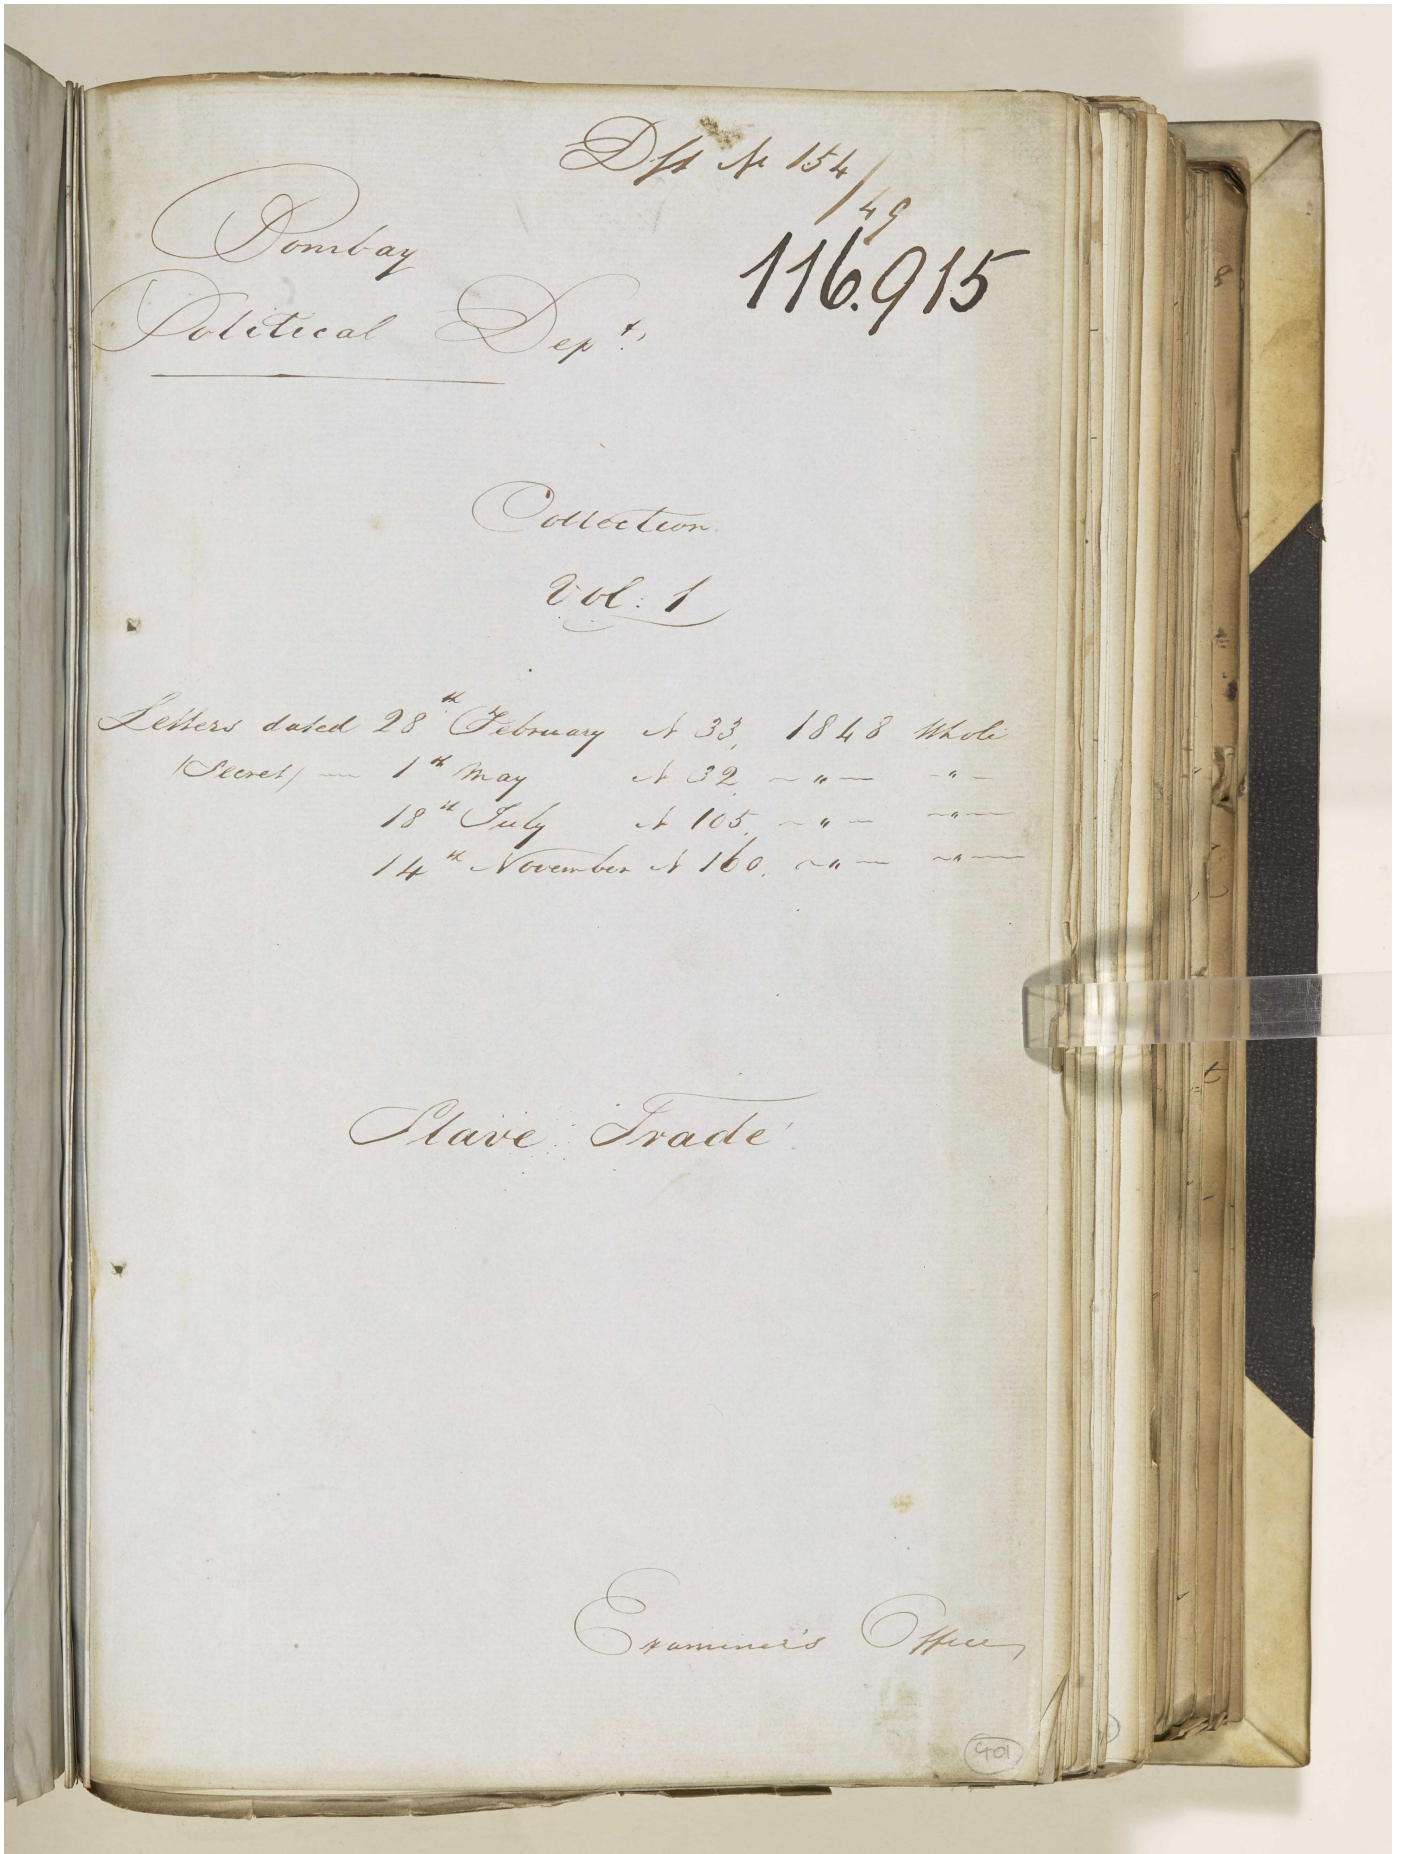 Dft No 154/49
Bombay
116.915
Political Dept.
Collection
Vol: 1
Letters dated 28th February No 33, 1848 Whole
(Secret) — 1st May No 32 — " — — " —
18th July No 105. — " — — " —
14th November No 160. — " — — " —
Slave Trade
Examiner's Office
401